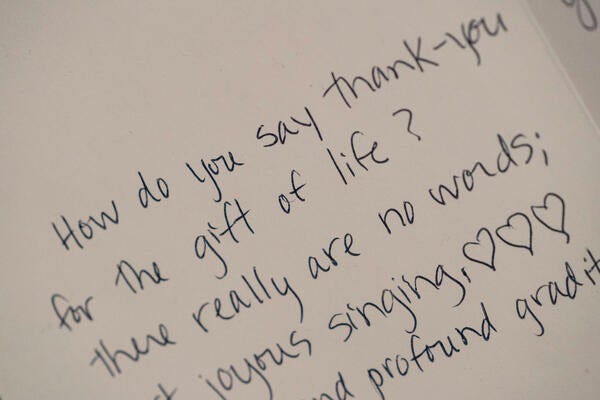 How do you say thank-you
for the gift of life?
there really are no words;
joyous singing. ♡♡♡
profound